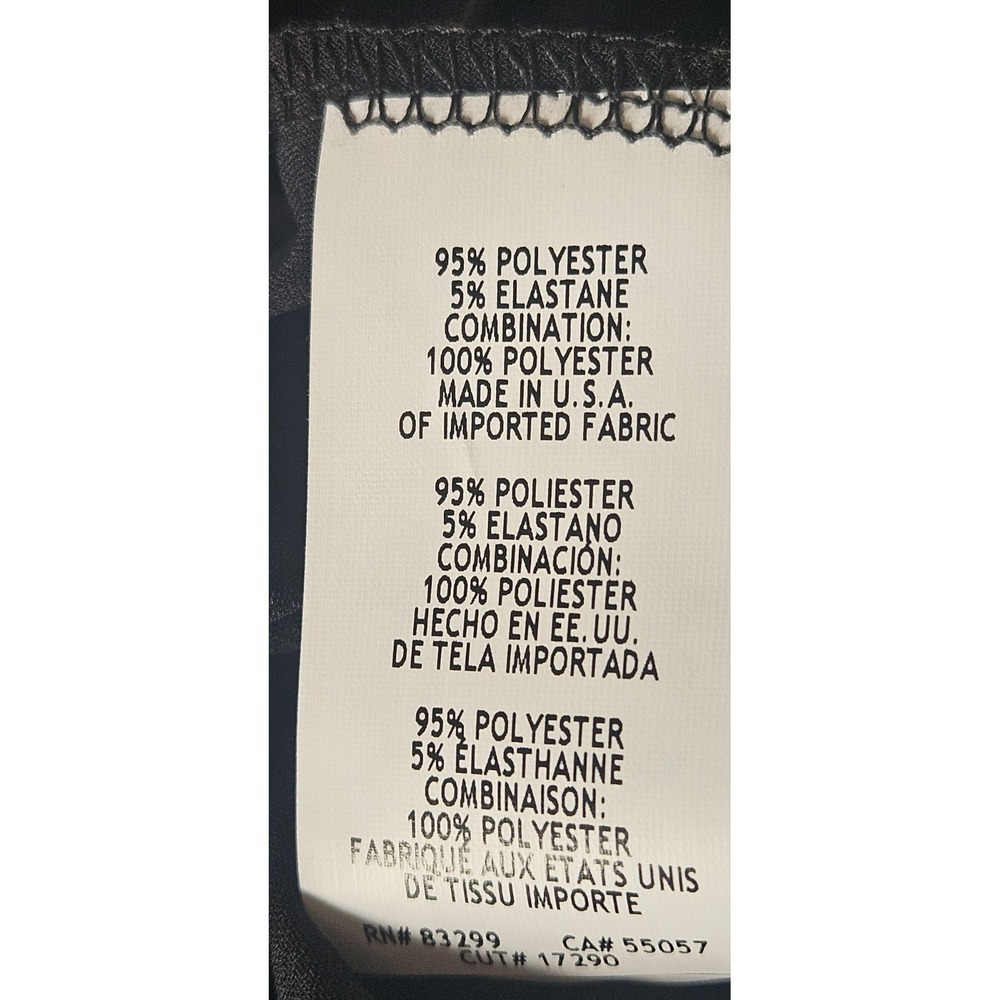 95% POLYESTER
5% ELASTANE
COMBINATION:
100% POLYESTER
MADE IN U.S.A.
OF IMPORTED FABRIC
95% POLIESTER
5% ELASTANO
COMBINACIÓN:
100% POLIESTER
HECHO EN EE.UU.
DE TELA IMPORTADA
95% POLYESTER
5% ÉLASTHANNE
COMBINAISON:
100% POLYESTER
FABRIQUÉ AUX ETATS UNIS
DE TISSU IMPORTE
RN# 83299 CA# 55057
CUT# 17290